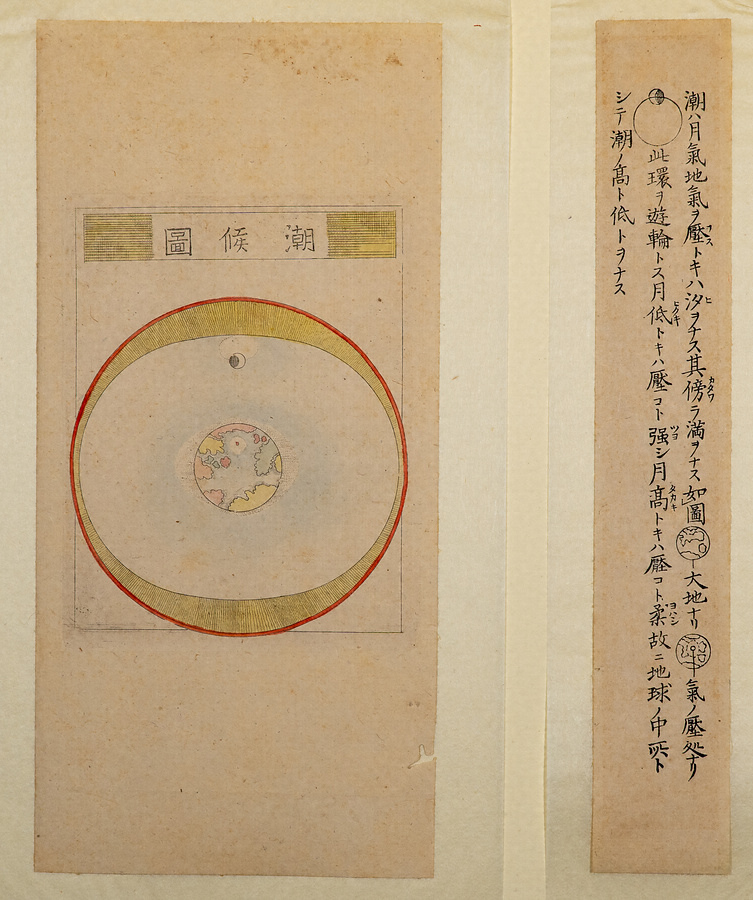 潮候圖
潮ハ月氣地氣ヲ壓トキハ汐ヲナス其傍ラ満ヲナス如圖 大地ナリ 氣ノ壓処ナリ
此環ヲ遊輪トス月低トキハ壓コト强シ月高トキハ壓コト柔故ニ地球ノ中
シテ潮ノ高ト低トヲナス